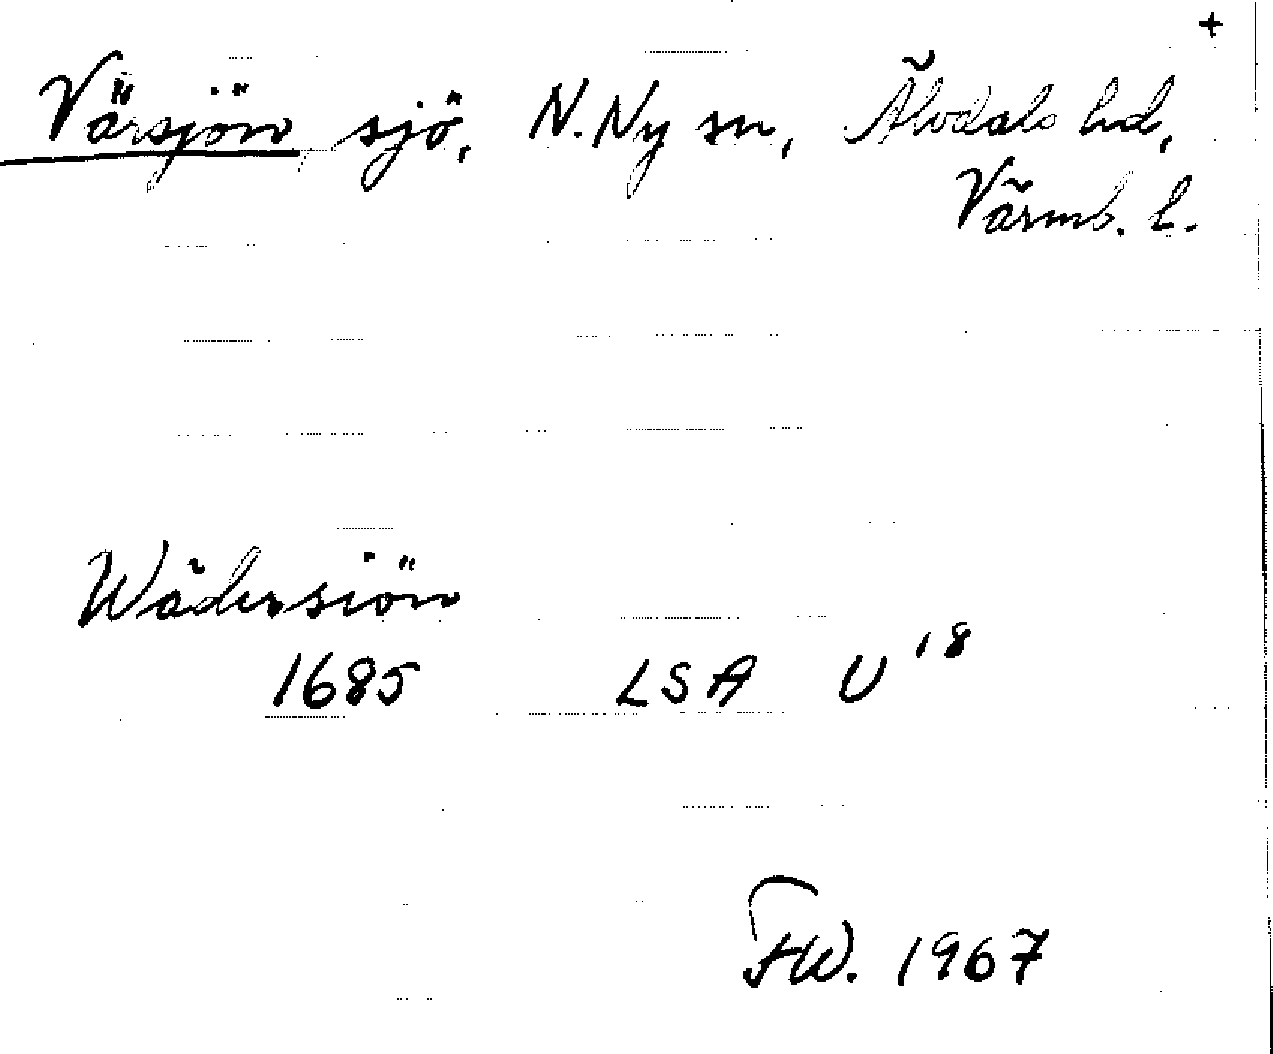 +
Värsjön sjö, N. Ny sn, Älvdals hd,
Värml. l.
Wädersiön
1685 LSA U 18
FW. 1967